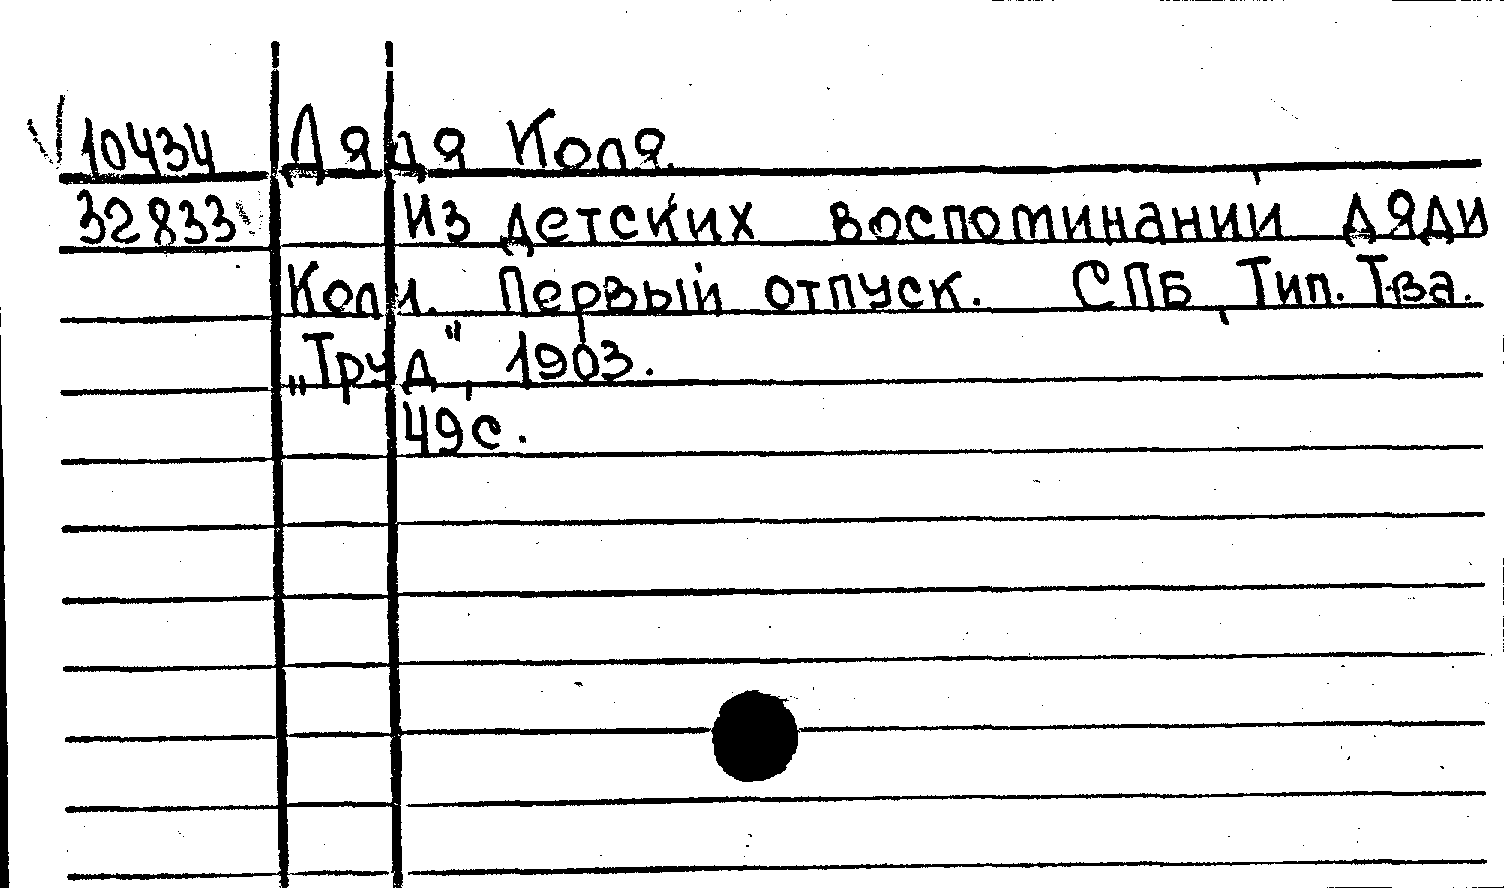 10434 Дядя Коля.
32833 Из детских воспоминании дяди
Коли. Первый отпуск. СПБ, Тип. Т-ва.
„Труд", 1903.
49с.